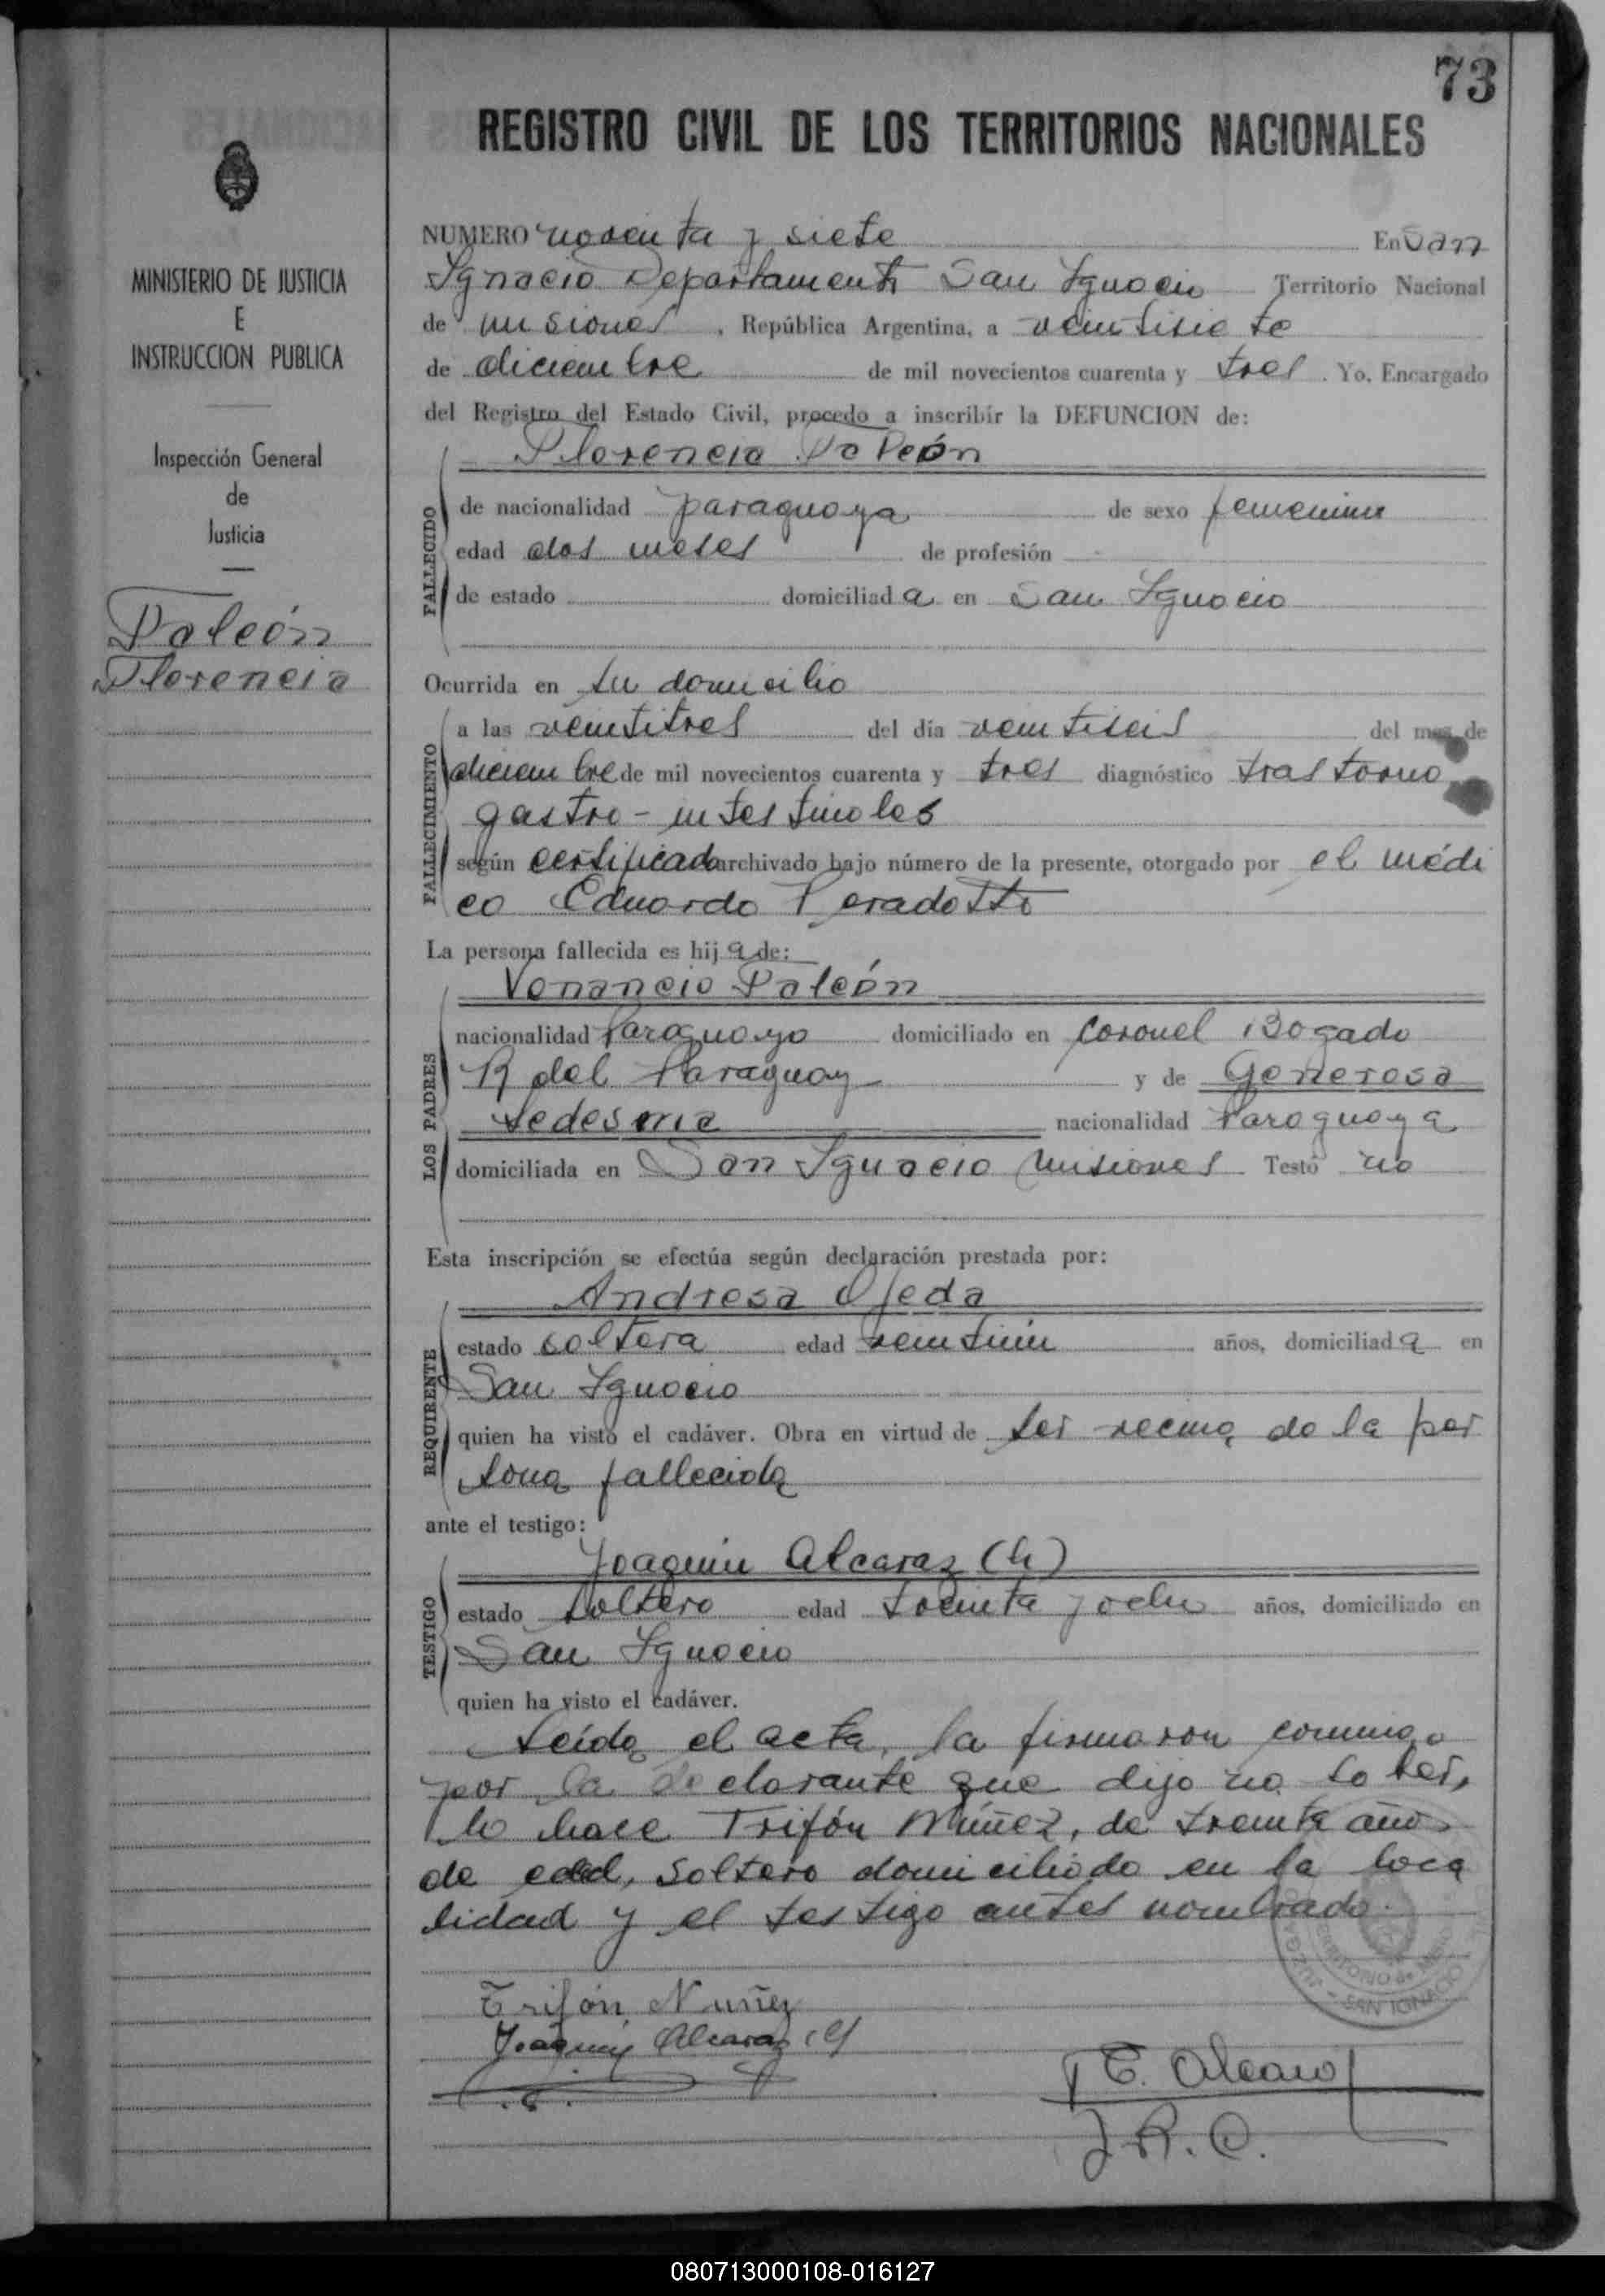 73
REGISTRO CIVIL DE LOS TERRITORIOS NACIONALES
MINISTERIO DE JUSTICIA
E
INSTRUCCION PUBLICA
Inspección General
de
Justicia
Faleón
Florencia
NUMERO noventa y siete En San
Ignacio Departamento San Ignacio Territorio Nacional
de misiones, República Argentina, a veintisiete
de diciembre de mil novecientos cuarenta y tres. Yo, Encargado
del Registro del Estado Civil, procedo a inscribir la DEFUNCION de:
Florencia Faleón
FALLECIDO
de nacionalidad paraguaya de sexo femenino
edad dos meses de profesión -
de estado domiciliada en San Ignacio
Ocurrida en su domicilio
FALLECIMIENTO
a las veintitres del día veintiseis del mes de
diciembre de mil novecientos cuarenta y tres diagnóstico trastorno
gastro-intestinales
según certificado archivado bajo número de la presente, otorgado por el médi
co Eduardo Peradotto
La persona fallecida es hija de:
LOS PADRES
Venancio Faleón
nacionalidad Paraguayo domiciliado en Coronel Bogado
R del Paraguay y de Generosa
Ledesma nacionalidad Paraguaya
domiciliada en San Ignacio Misiones Testó no
Esta inscripción se efectúa según declaración prestada por:
REQUIRENTE
Andresa Ojeda
estado soltera edad veintiun años, domiciliada en
San Ignacio
quien ha visto el cadáver. Obra en virtud de ser vecina de la per
sona fallecida
ante el testigo:
TESTIGO
Joaquin Alcaraz (h)
estado soltero edad treinta y ocho años, domiciliado en
San Ignacio
quien ha visto el cadáver.
Leída el acta, la firmaron conmigo
por la declarante que dijo no saber,
lo hace Trifón Núñez, de treinta años
de edad, soltero domiciliado en la loca
lidad y el testigo antes nombrado.
Trifón Nuñez
Joaquin Alcaraz (h)
SAN IGNACIO
J.R.C.
080713000108-016127